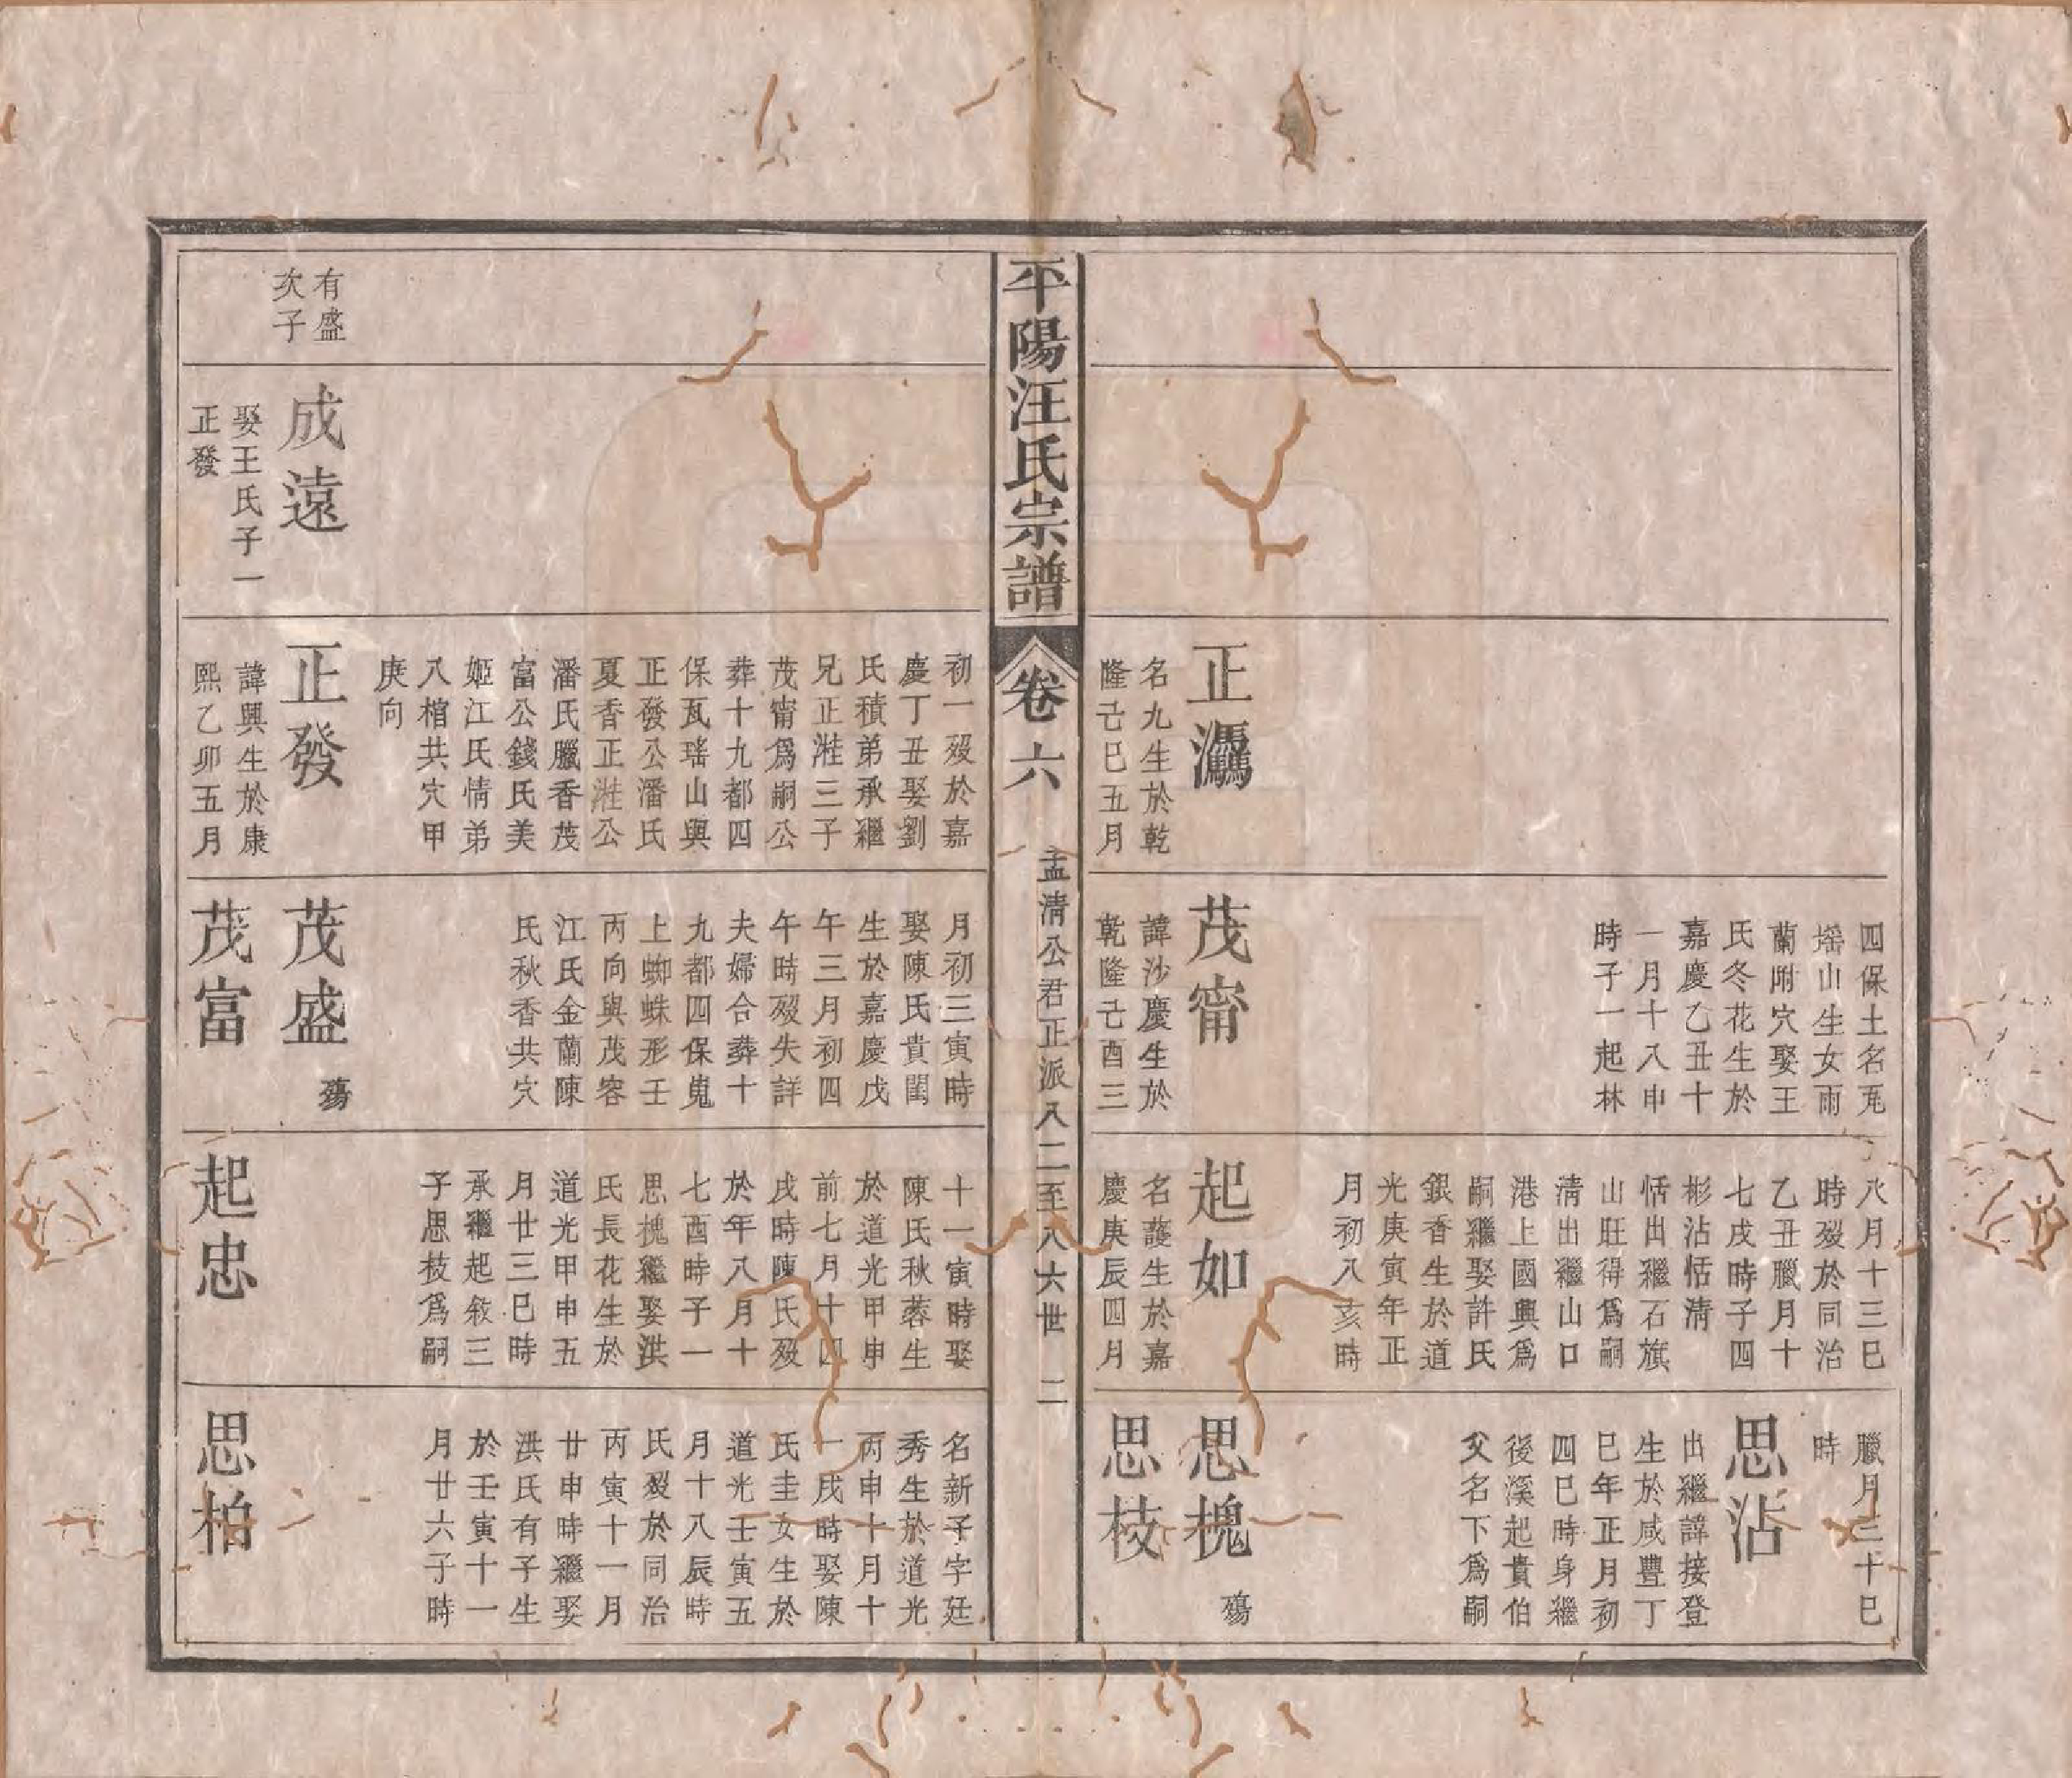 正
名九生於乾
隆己巳五月
四保土名瓦
瑶山生女雨
蘭附穴娶王
氏冬花生於
嘉慶乙丑十
一月十八申
時子一起林
茂甯
諱沙慶生於
乾隆己酉三
八月十三巳
時歿於同治
乙丑臘月十
七戌時子四
彬沾恬清
恬出繼石旗
山旺得爲嗣
清出繼山口
港上國興爲
嗣繼娶許氏
銀香生於道
光庚寅年正
月初八亥時
起如
名護生於嘉
慶庚辰四月
臘月三十巳
時
思沾
出繼諱接登
生於咸豐丁
巳年正月初
四巳時身繼
後溪起貴伯
父名下爲嗣
思槐
殤
思枝
平陽汪氏宗譜
卷六
孟清公君正派八二至八六世
二
有盛
次子
成遠
娶王氏子一
正發
初一歿於嘉
慶丁丑娶劉
氏積弟承繼
兄正溎三子
茂甯爲嗣公
葬十九都四
保瓦瑤山與
正發公潘氏
夏香正溎公
潘氏臘香茂
富公錢氏美
姬江氏情弟
八棺共穴甲
庚向
正發
諱興生於康
熙乙卯五月
月初三寅時
娶陳氏貴閨
生於嘉慶戊
午三月初四
午時歿失詳
夫婦合葬十
九都四保嵬
上蜘蛛形壬
丙向與茂容
江氏金蘭陳
氏秋香共穴
茂盛
殤
茂富
十一寅時娶
陳氏秋蓉生
於道光甲申
前七月十四
戌時陳氏歿
於年八月十
七酉時子一
思槐繼娶洪
氏長花生於
道光甲申五
月廿三巳時
承繼起敘三
子思枝爲嗣
起忠
名新子字廷
秀生於道光
丙申十月十
一戌時娶陳
氏圭女生於
道光壬寅五
月十八辰時
氏歿於同治
丙寅十一月
廿申時繼娶
洪氏有子生
於壬寅十一
月廿六子時
思柏